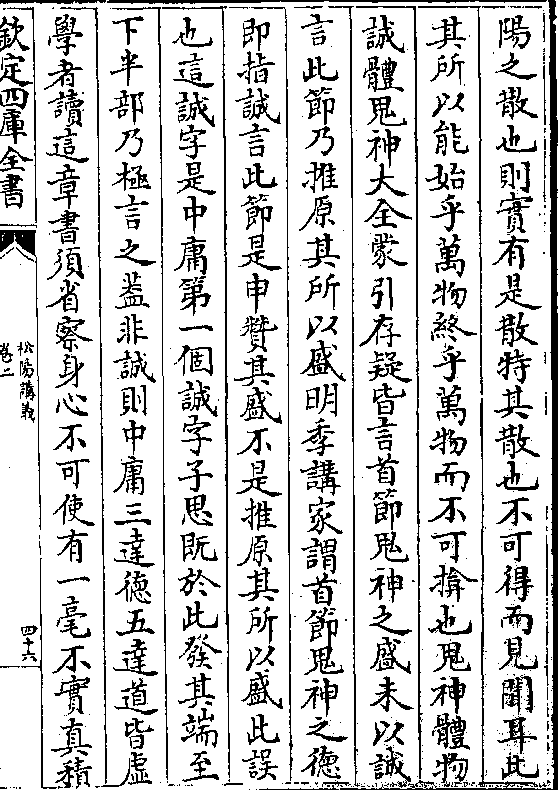 陽之散也則實有是散特其散也不可得而見聞耳此
其所以能始乎萬物終乎萬物而不可揜也鬼神體物
誠體鬼神大全蒙引存疑皆言首節鬼神之盛未以誠
言此節乃推原其所以盛明季講家謂首節鬼神之德
即指誠言此節是申贊其盛不是推原其所以盛此誤
也這誠字是中庸第一個誠字子思既於此發其端至
下半部乃極言之葢非誠則中庸三達德五達道皆虛
學者讀這章書須省察身心不可使有一毫不實真積
欽定四庫全書
松陽講義
卷二
四十六